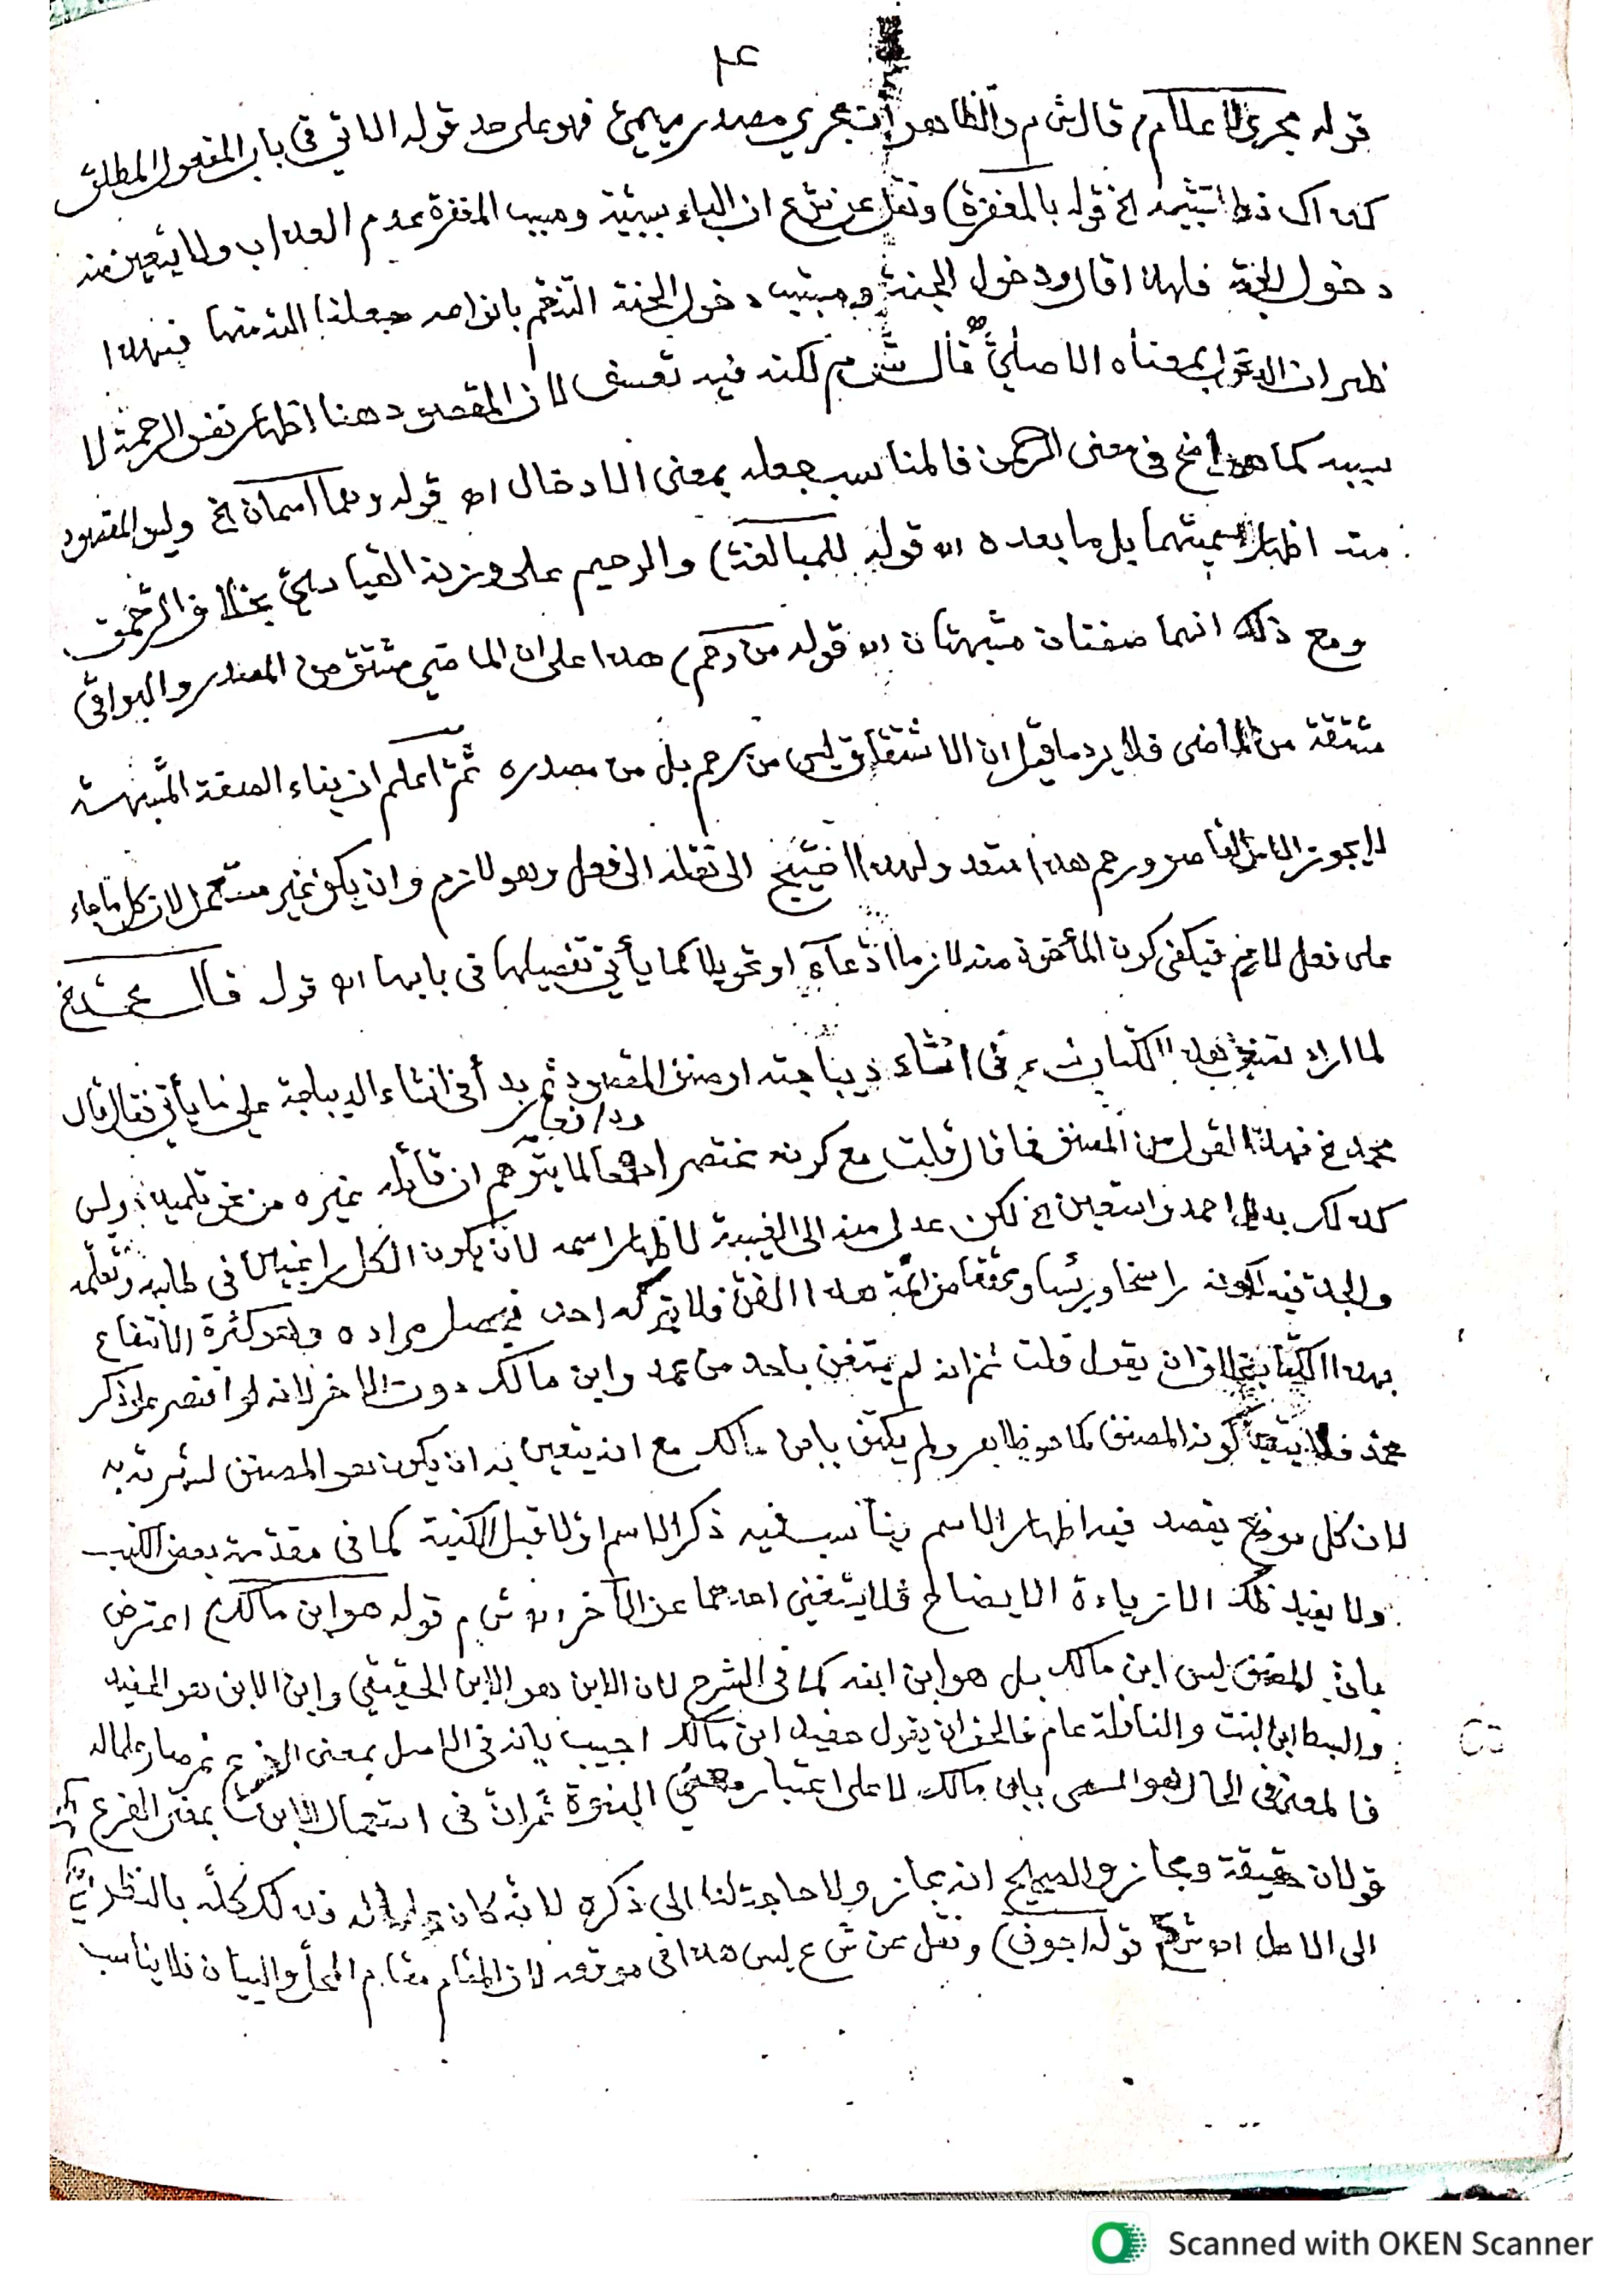 قوله مجرى الاعلام) قال ش م والظاهر ان مجرى مصدر ميمي فهو على حد قوله الاتي في باب المفعول المطلق
كذاك ذو تشبيه الخ قوله بالمغفرة) ونقل عن ش ع ان الباء سببية ومسبب المغفرة عدم العذاب ولا يتعين منه
دخول الجنة فلهذا قال ودخول الجنة ومسبب دخول الجنة التنعم بانواعه جعلنا الله منها فبهذا
ظهر ان بمعناه الاصلي قال ش م لكنه فيه تعسف لان المقصود هنا اظهار نفس الرحمة لا
سببه كما في معنى الرحمن فالمناسب جعله بمعنى الادخال اه قوله وهما اسمان الخ وليس المقصود
منه اظهار اسميتهما بل ما بعده اه قوله للمبالغة) والرحيم على وزنه القياسي بخلاف الرحمن
ومع ذلك انهما صفتان مشبهتان اه قوله من رحم) هذا على ان الماضي مشتق من المصدر والبواقي
مشتقة من الماضي فلا يرد ما قيل ان الاشتقاق ليس من رحم بل من مصدره ثم اعلم ان بناء الصفة المشبهة
لا يجوز الا من القاصر ورحم هذا متعد ولهذا احتيج الى نقله الى فعل وهو لازم وان يكون غير مستعمل لان كل ما جاء
على فعل لازم فيكفي كون المأخوذ منه لازما ادعاء او تحويلا كما يأتي تفصيلها في بابها اه قوله قال محمد الخ
لما اراد هذا الكتاب في انشاء ديباجته او صنف المقصود ثم بدأ في انشاء الديباجة على ما يأتي فقال قال
محمد الخ فهذا القول من المصنف فما قال قلت مع كونه مختصرا دفعا لما يتوهم ان قائله غيره من نحو تلميذه وليس
كذلك بدليل احمد واستعين الخ لكن عدل منه الى الغيبة لاظهار اسمه لان يكون الكل راغبين في طلبه وتعلمه
والجد فيه لكونه راسخا ورئيسا ومحققا من ائمة هذا الفن فلا يتركه احد فيحصل مراده وهو كثرة الانتفاع
بهذا الكتاب بخلاف ان يقول قلت ثم انه لم يستغن باحد من محمد وابن مالك دون الاخر لانه لو اقتصر على ذكر
محمد فلا يتعين كونه المصنف كما هو ظاهر ولم يكتف بابن مالك مع انه يتعين به ان يكون هو المصنف لشهرته به
لان كل موضع يقصد فيه اظهار الاسم يناسب فيه ذكر الاسم اولا قبل الكنية كما في مقدمة بعض الكتب
ولا يفيد ذلك الا زيادة الايضاح فلا يستغنى احدهما عن الآخر اه ش م قوله هو ابن مالك) اعترض
بأن المصنف ليس ابن مالك بل هو ابن ابنه كما في الشرح لان الابن هو الابن الحقيقي وابن الابن هو الحفيد
والسبط ابن البنت والنافلة عام فالحق ان يقول حفيد ابن مالك اجيب بانه في الاصل بمعنى الفرع ثم صار علما له
فالمعنى في الحال هو المسمى بابن مالك لا على اعتبار معنى البنوة ثم ان في استعمال الابن بمعنى الفرع
قولان حقيقة ومجاز والصحيح انه مجاز ولا حاجة لنا الى ذكره لانه كان علما له فذلك كله بالنظر
الى الاصل اه ش م قوله اجوف) ونقل عن ش ع ليس هذا في موقعه لان المقام مقام والبيان فلا يناسب
Scanned with OKEN Scanner